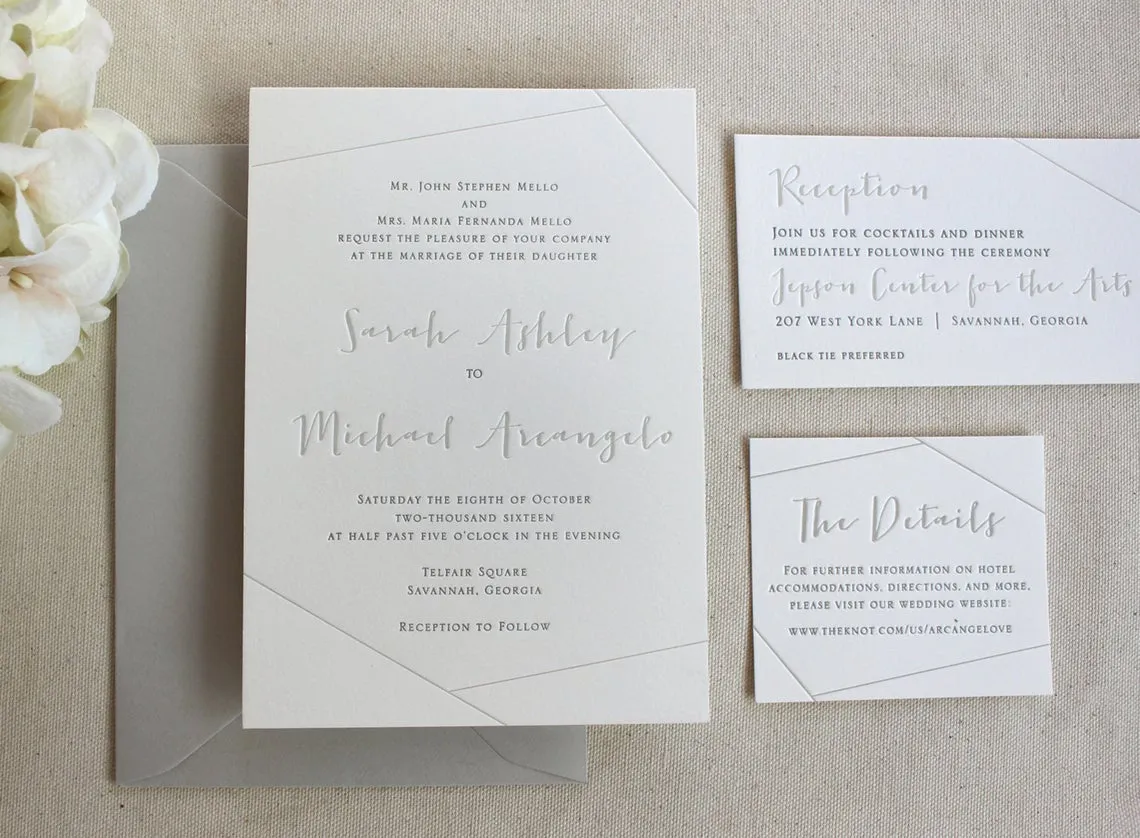 Mr. John Stephen Mello
and
Mrs. Maria Fernanda Mello
request the pleasure of your company
at the marriage of their daughter
Sarah Ashley
to
Michael Arcangelo
Saturday the eighth of October
two-thousand sixteen
at half past five o'clock in the evening
Telfair Square
Savannah, Georgia
Reception to Follow
Reception
Join us for cocktails and dinner
immediately following the ceremony
Jepson Center for the Arts
207 West York Lane | Savannah, Georgia
black tie preferred
The Details
For further information on hotel
accommodations, directions, and more,
please visit our wedding website:
www.theknot.com/us/arcangelove